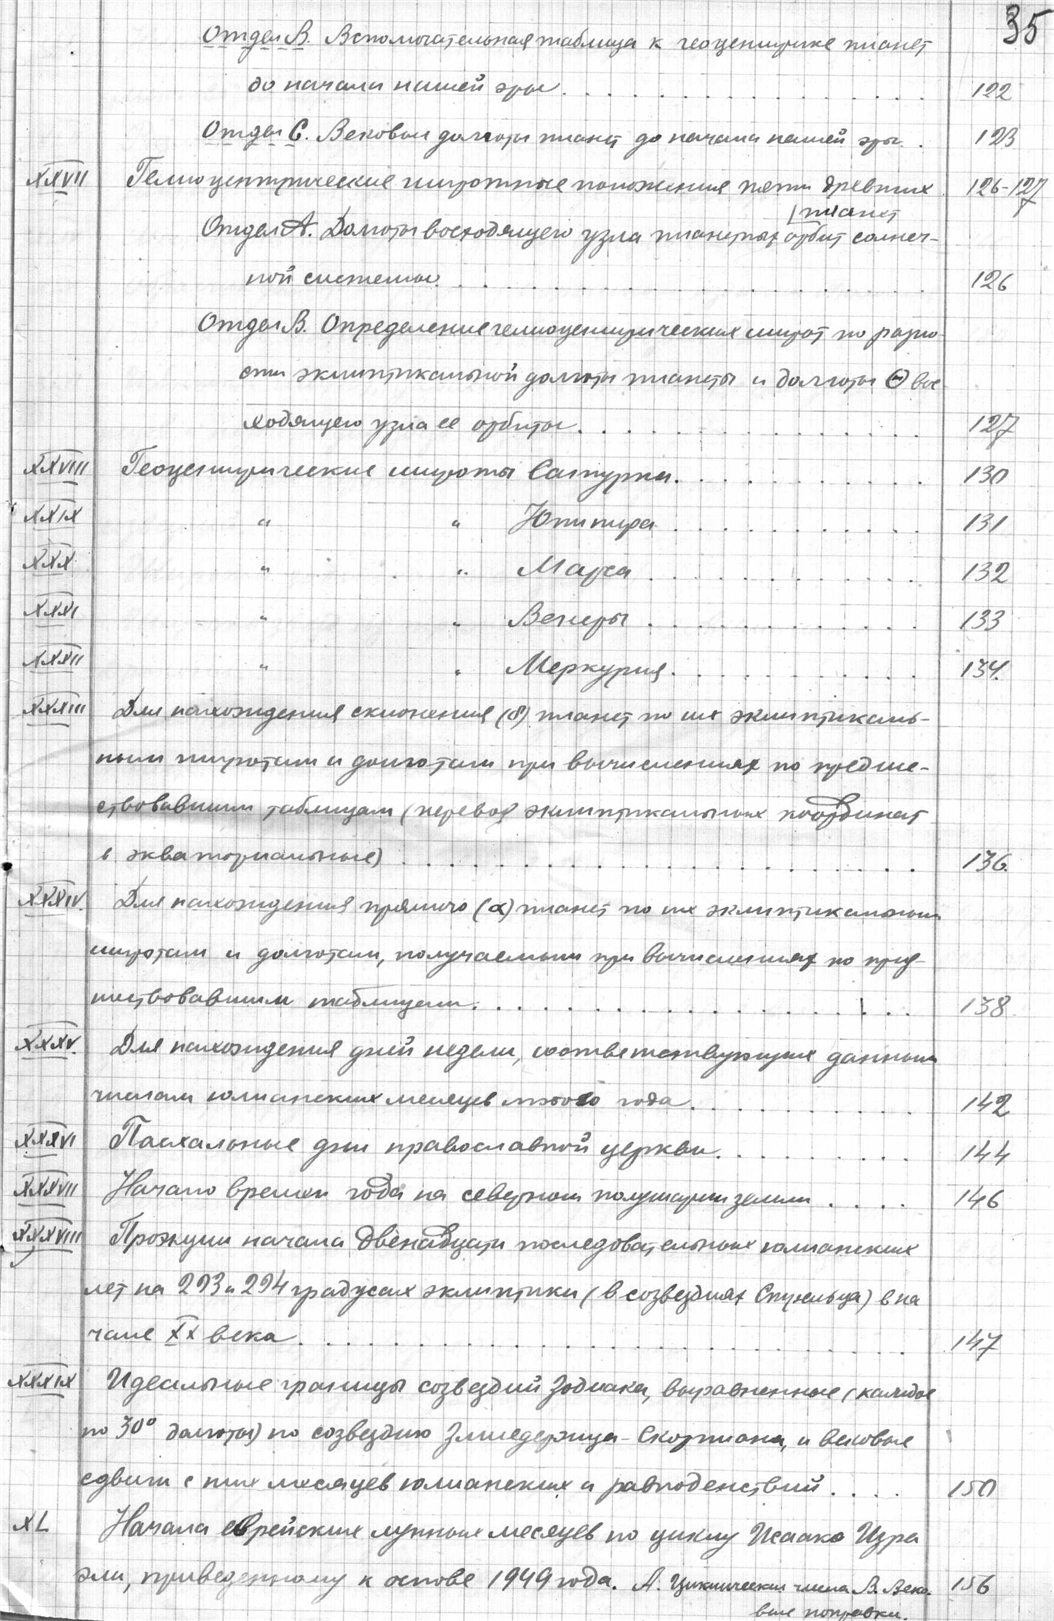 35
Отдел В. Вспомогательная таблица к геоцентрике планет
до начала нашей эры . . . . . . . . . . . . . . . . 122
Отдел С. Вековые долготы планет до начала нашей эры . . 123
XXVII Гелиоцентрические широтные положения пяти древних 126-127
планет
Отдел А. Долготы восходящего узла планетных орбит солнеч-
ной системы . . . . . . . . . . . . . . . . 126
Отдел В. Определение гелиоцентрических широт по разно-
сти эклиптикальной долготы планеты и долготы Ꙩ вос
ходящего узла ее орбиты . . . . . . . . . . . . 127
XXVIII Геоцентрические широты Сатурна . . . . . . . . . 130
XXIX " " Юпитера . . . . . . . . . 131
XXX " " Марса . . . . . . . . . 132
XXXI " " Венеры . . . . . . . . . 133
XXXII " " Меркурия . . . . . . . . . 134
XXXIII Для нахождения склонения (δ) планет по их эклиптикаль-
ным широтам и долготам при вычислениях по предше-
ствовавшим таблицам (перевод эклиптикальных координат
в экваториальные) . . . . . . . . . . . . . . . . 136
XXXIV. Для нахождения прямого (α) планет по их эклиптикальным
широтам и долготам, получаемым при вычислениях по пред-
шествовавшим таблицам . . . . . . . . . . . . . . 138
XXXV. Для нахождения дней недели, соответствующих данным
числам юлианских месяцев любого года . . . . . . . . 142
XXXVI Пасхальные дни православной церкви . . . . . . . . 144
XXXVII Начало времен года на северном полушарии земли . . . . 146
XXXVIII Прожуии начала двенадцати последовательных юлианских
лет на 293 и 294 градусах эклиптики (в созвездиях Стрельца) в на
чале XX века . . . . . . . . . . . . . . . . 147
XXXIX Идеальные границы созвездий Зодиака, выравненные (каждое
по 30° долготы) по созвездию Змиедержца-Скорпиона, и вековые
сдвиги с них месяцев юлианских и равноденствий . . . . 150
XL Начала еврейских лунных месяцев по циклу Исаака Изра
эли, приведенному к основе 1949 года. А. Циклические числа В. Веко- 156
вые поправки.